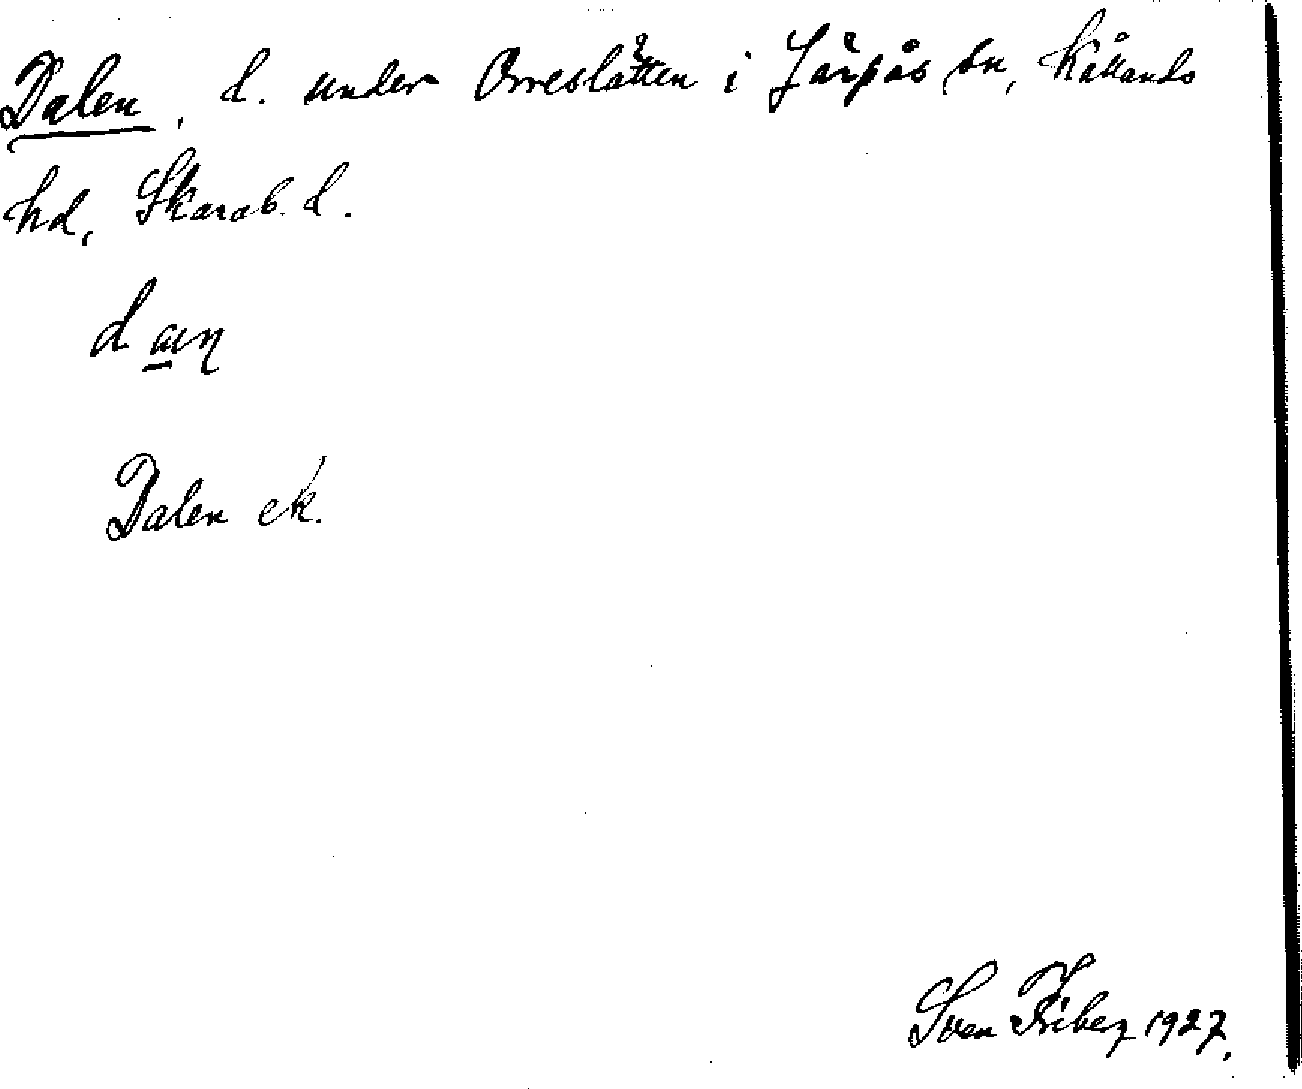 Dalen, l. under Orreslätten i Järpås sn, Kållands
hd, Skarab. l.
Dalen ek.
Sven Friberg 1927.